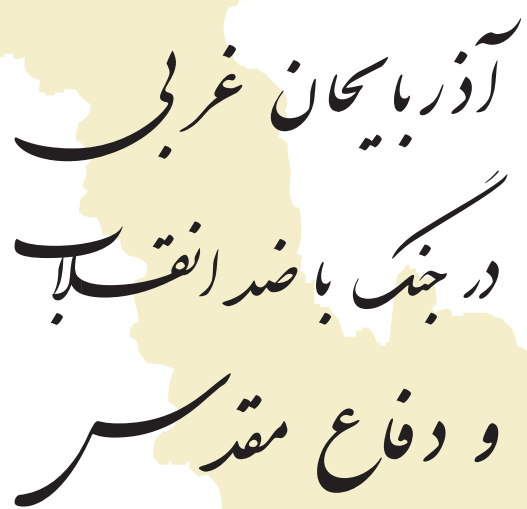 آذربایجان غربی
در جنگ با ضد انقلاب
و دفاع مقدس